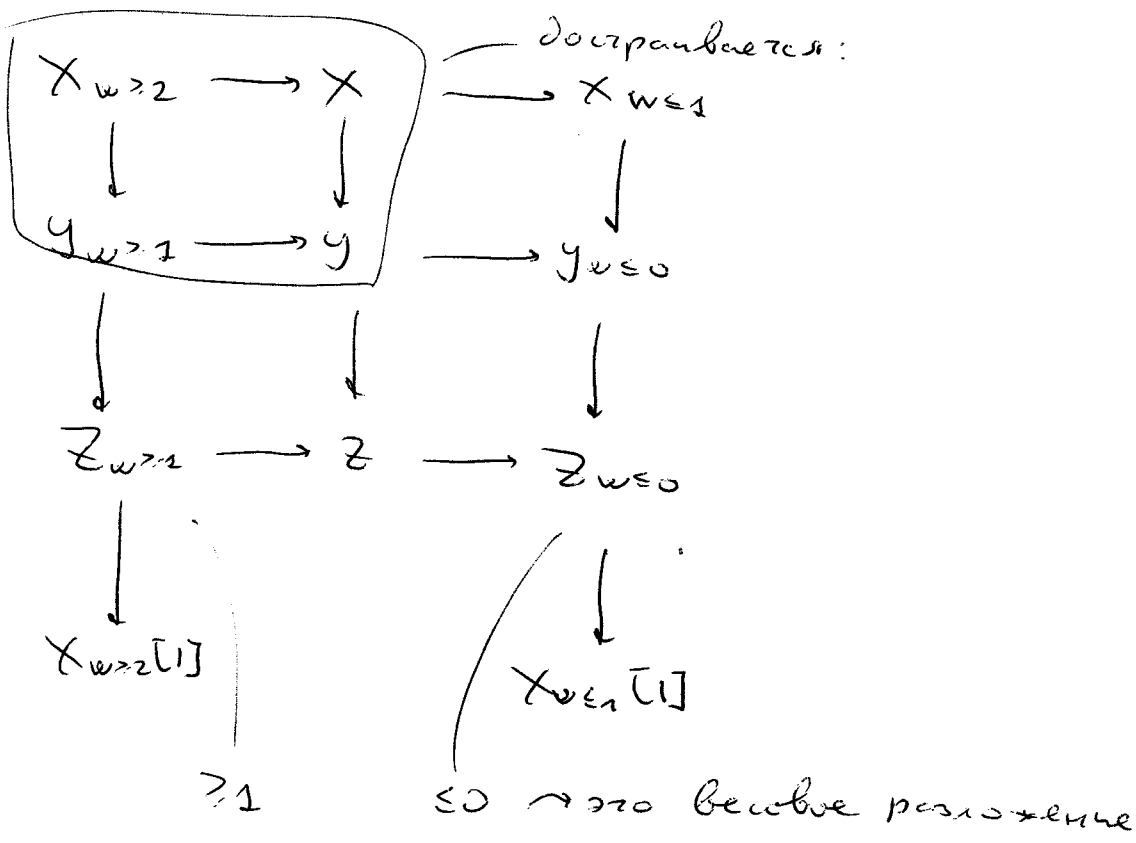 достраивается:
X_{w≥2} → X → X_{w≤1}
y_{w≥1} → y → y_{w≤0}
Z_{w≥1} → Z → Z_{w≤0}
X_{w≥2}[1] X_{w≤1}[1]
≥1 ≤0 → это весовое разложение